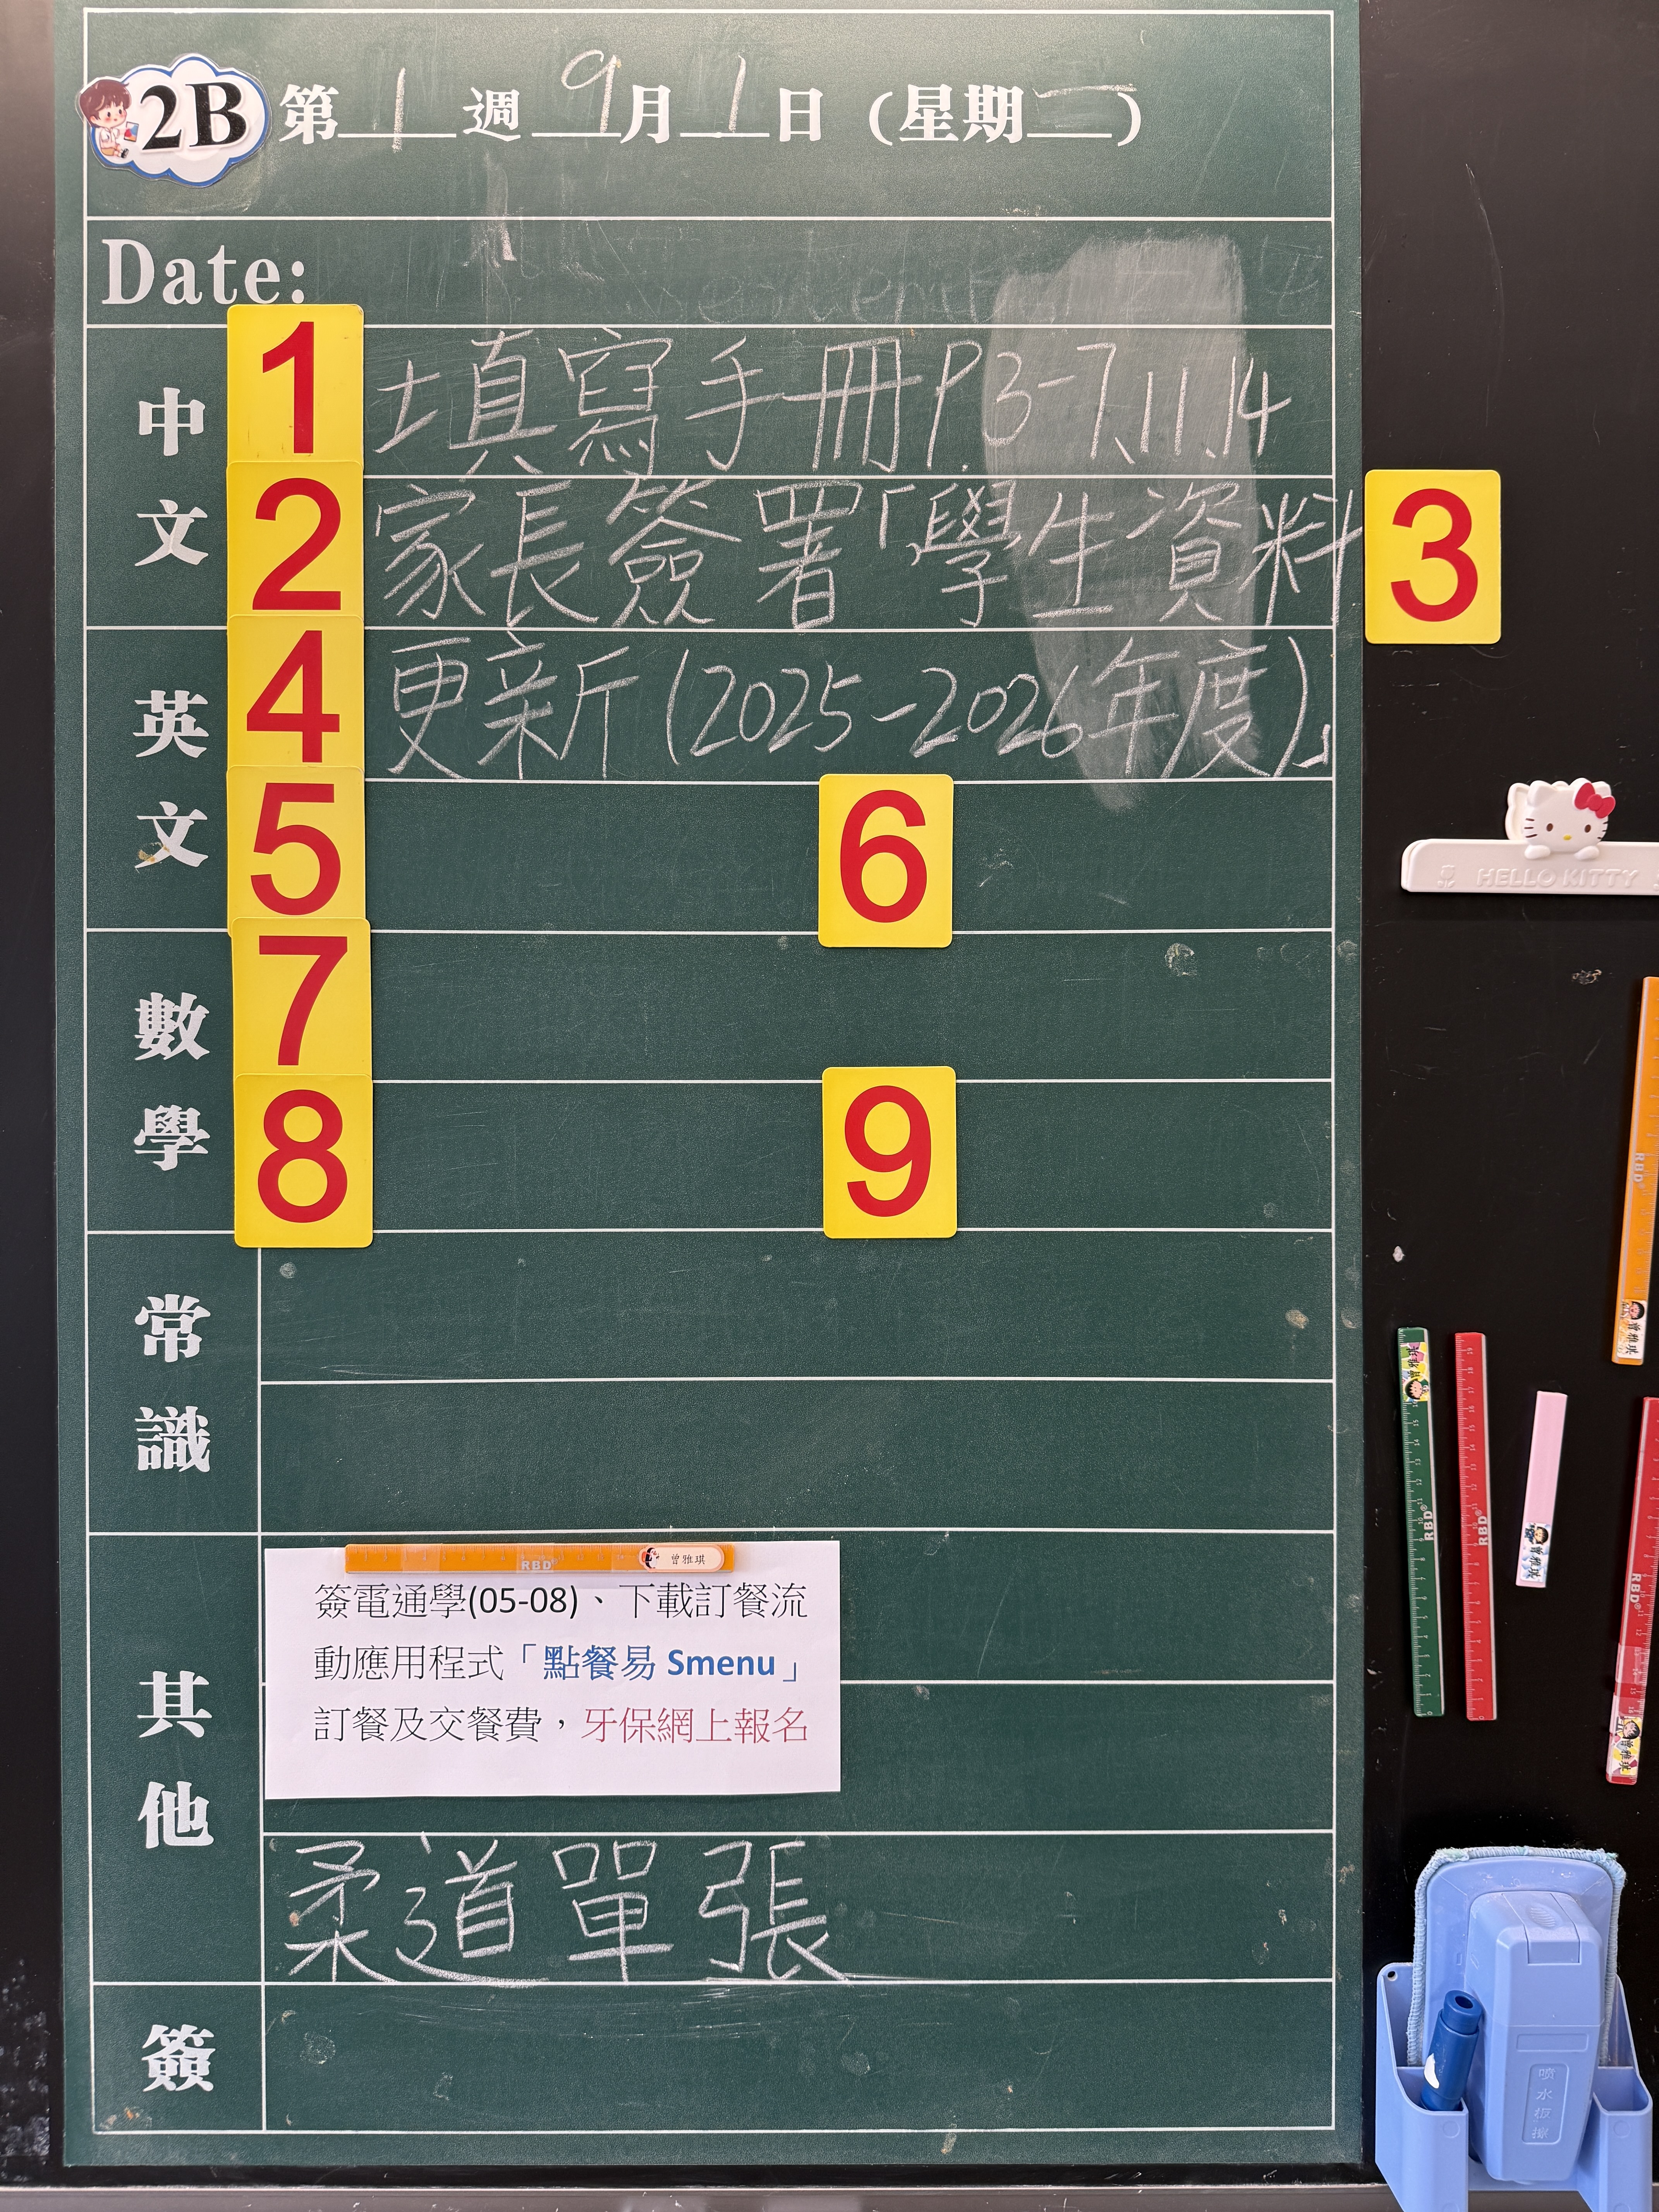 2B 第1週 9月1日 (星期一)
Date:
中文
1 填寫手冊P.3-7、11、14
2 家長簽署「學生資料 3
英文
4 更新(2025-2026年度)」
5 6
數學
7
8 9
常識
其他
RBD 曾雅琪
簽電通學(05-08)、下載訂餐流
動應用程式「點餐易 Smenu」
訂餐及交餐費，牙保網上報名
柔道單張
簽
HELLO KITTY
RBD 曾雅琪
RBD
RBD
曾雅琪
RBD 曾雅琪
噴水板擦